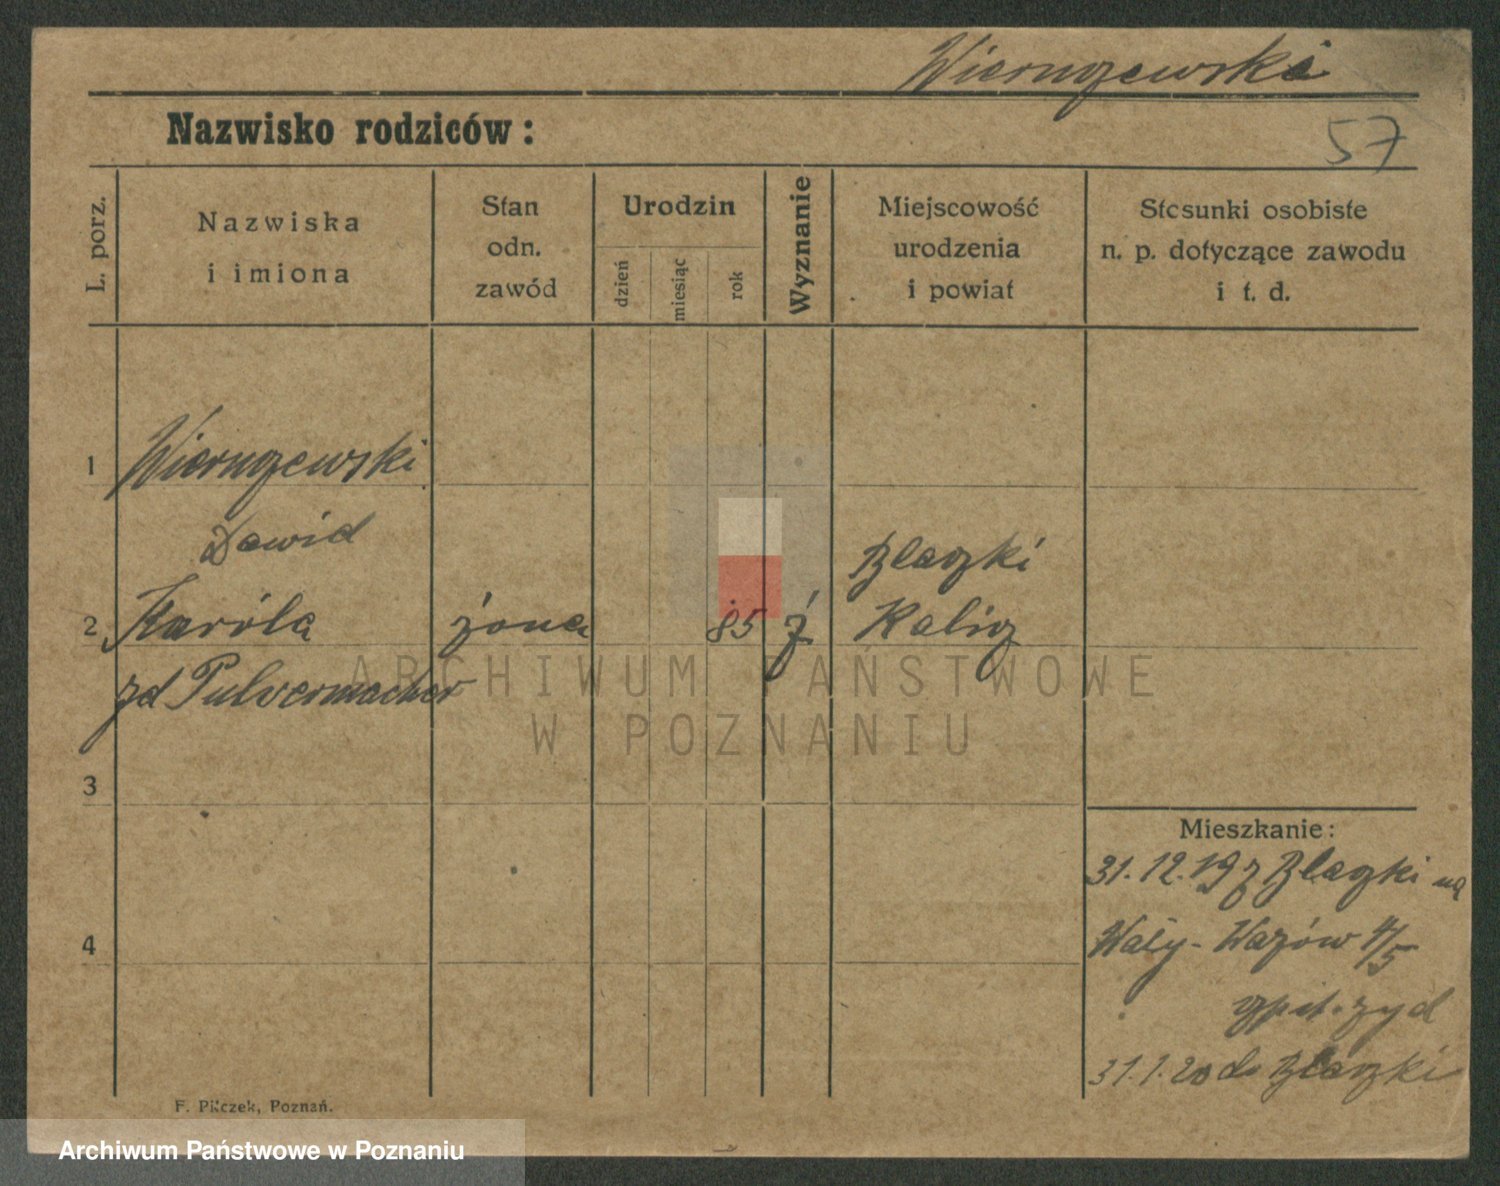 Wieruszewski
Nazwisko rodziców:
57
L. porz.
Nazwiska
i imiona
Stan
odn.
zawód
Urodzin
dzień
miesiąc
rok
Wyznanie
Miejscowość
urodzenia
i powiat
Stosunki osobiste
n. p. dotyczące zawodu
i t. d.
1 Wieruszewski
Dawid
Blaszki
2 Karóla żona 85 ż Kalisz
zd Pulvermacher
ARCHIWUM PAŃSTWOWE
W POZNANIU
3
Mieszkanie:
31.12.19 z Blaszki na
Wały-Wazów 4/5
4
szpit. żyd
31.1.20 do Blaszki
F. Pilczek, Poznań.
Archiwum Państwowe w Poznaniu